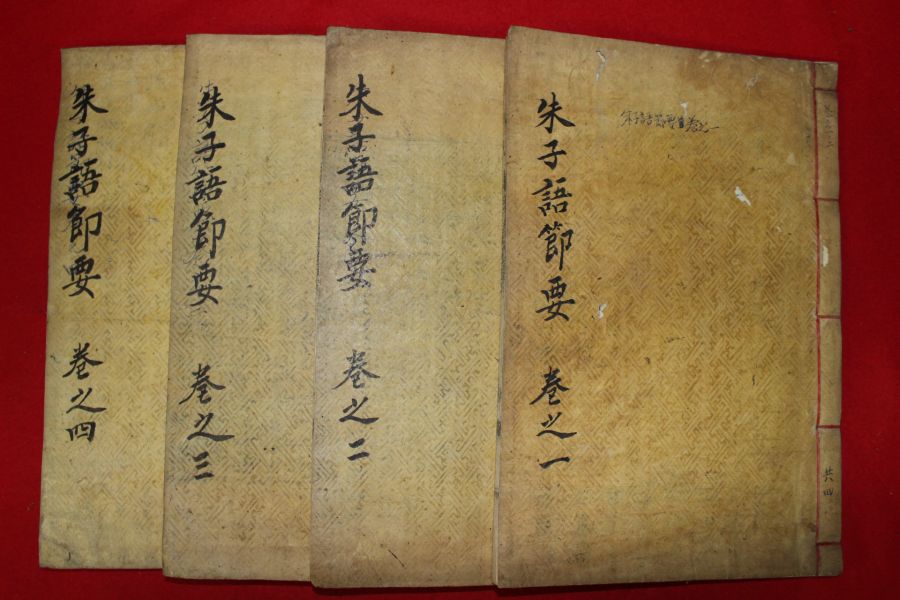 朱子語節要 卷之一
共四
朱子語節要 卷之二
朱子語節要 卷之三
朱子語節要 卷之四